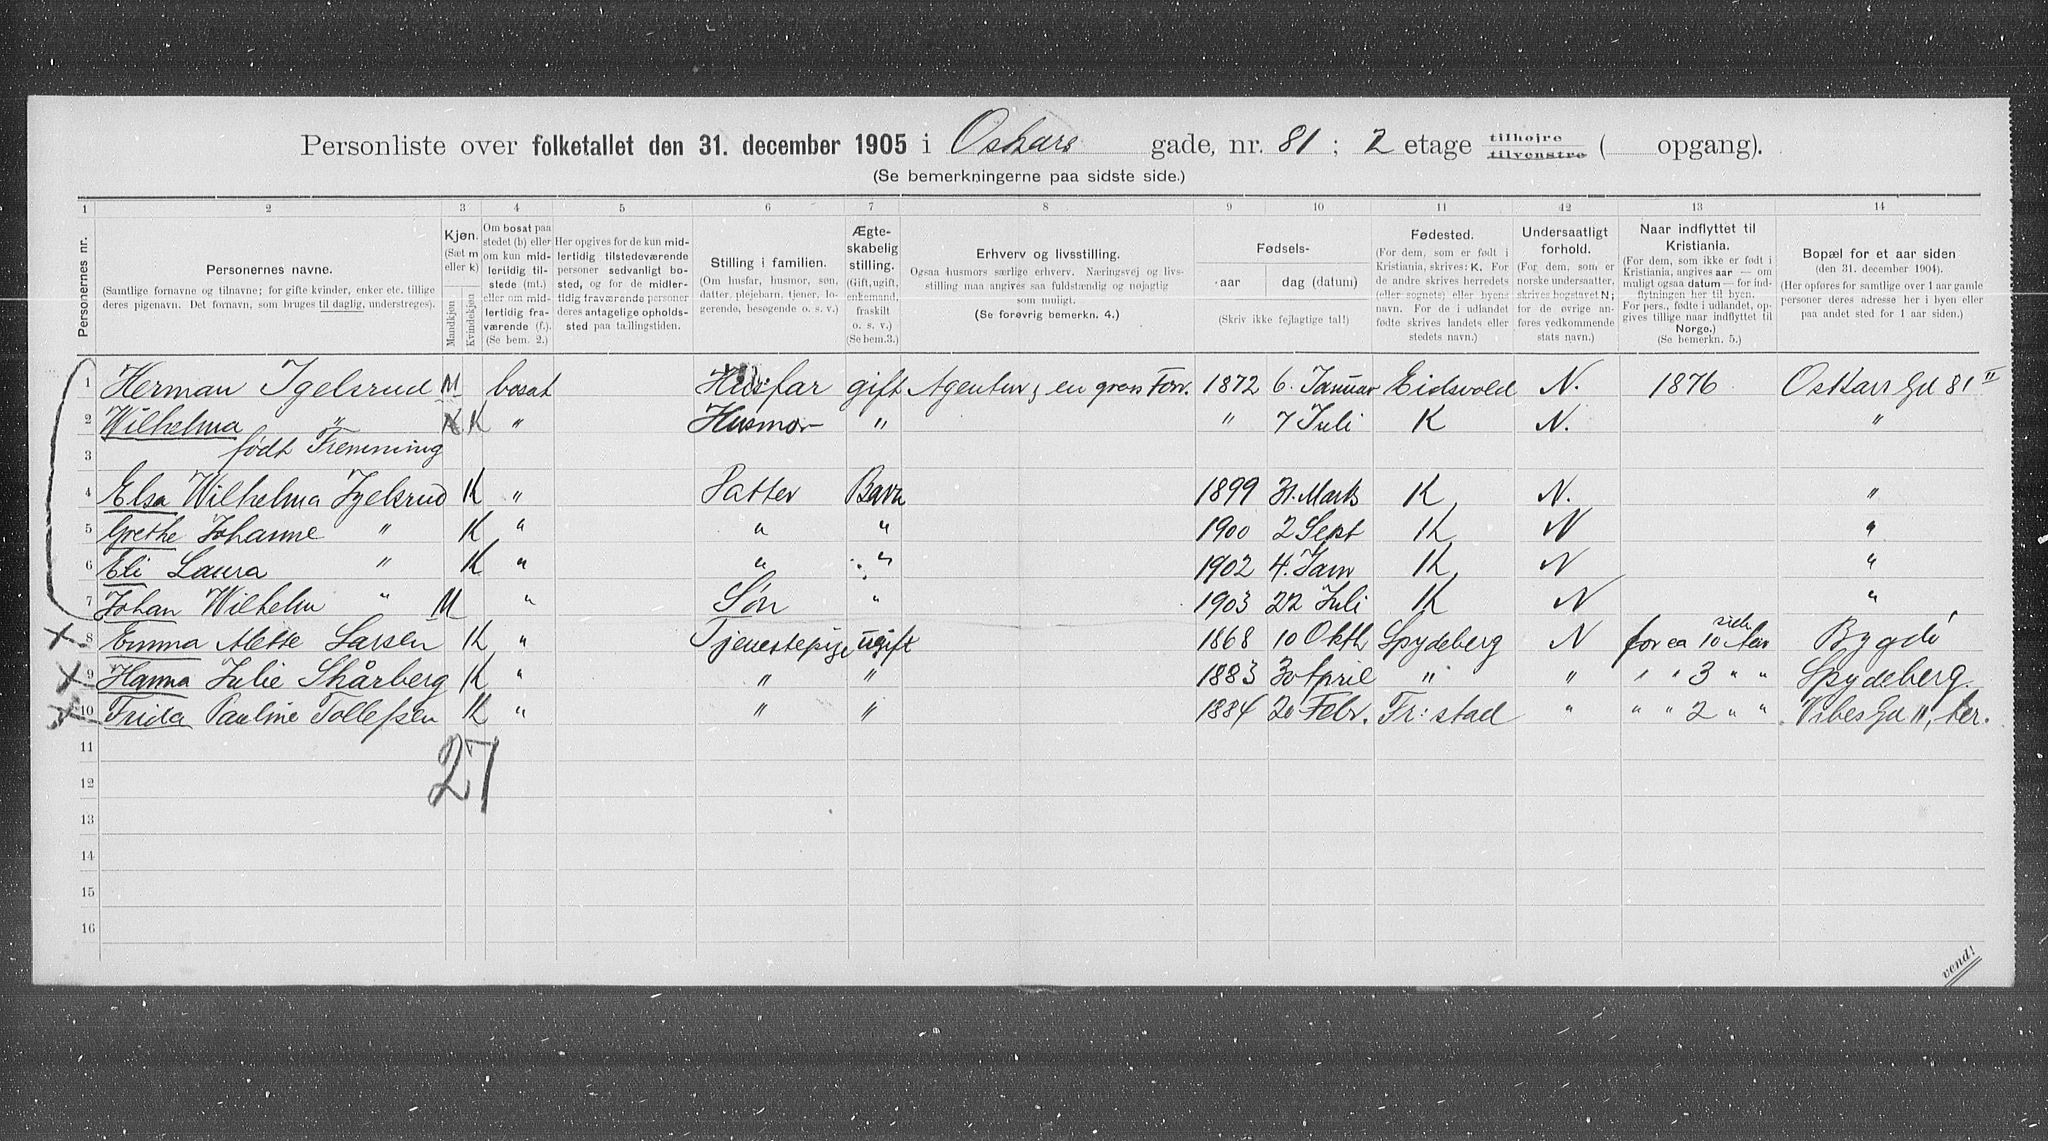 Personliste over folketallet den 31. december 1905 i Oskars gade, nr. 81 ; 2 etage tilhøire tilvenstre ( opgang).
(Se bemerkningerne paa sidste side.)
1 2 3 4 5 6 7 8 9 10 11 12 13 14
Personernes nr.
Personernes navne.
(Samtlige fornavne og tilnavne; for gifte kvinder, enker etc. tillige deres pigenavn. Det fornavn, som bruges til daglig, understreges).
Kjøn.
(Sæt m eller k)
Mandkjøn
Kvindekjøn
Om bosat paa stedet (b) eller om kun midlertidig tilstede (mt.) eller om midlertidig fraværende (f.). (Se bem. 2.)
Her opgives for de kun midlertidig tilstedeværende personer sedvanlig bosted, og for de midlertidig fraværende personer deres antagelige opholdssted paa tællingstiden.
Stilling i familien.
(Om husfar, husmor, søn, datter, plejebarn, tjener, logerende, besøgende o. s. v.)
Ægteskabelig stilling.
(Gift, ugift, enkemand, fraskilt o. s. v.) (Se bem.3.)
Erhverv og livsstilling.
Ogsaa husmors særlige erhverv. Næringsvej og livsstilling maa angives saa fuldstændig og nøjagtig som muligt.
(Se forøvrig bemerkn. 4.)
Fødsels-
aar
dag (datum)
(Skriv ikke fejlagtige tal!)
Fødested.
(For dem, som er født i Kristiania, skrives: K. For de andre skrives herredets (eller sognets) eller byens navn. For de i udlandet fødte skrives landets eller stedets navn.)
Undersaatligt forhold.
(For dem, som er norske undersaatter, skrives bogstavet N; for de øvrige anføres vedkommende stats navn.)
Naar indflyttet til Kristiania.
(For dem, som ikke er født i Kristiania, angives aar — om muligt ogsaa datum — for indflytningen her til byen. For pers., fødte i udlandet, opgives tillige naar indflyttet til Norge.)
(Se bemerkn. 5.)
Bopæl for et aar siden
(den 31. december 1904).
(Her opføres for samtlige over 1 aar gamle personer deres adresse her i byen eller paa andet sted for 1 aar siden.)
1 Herman Igelsrud M bosat Husfar gift Agentur, en gros Forr. 1872 6. Januar Eidsvold N. 1876 Oskars Gd 81 II
2 Wilhelma " K " Husmor " " 7 Juli K N. "
3 født Fremming
4 Elsa Wilhelma Igelsrud K " Datter Barn 1899 31. Marts K N. "
5 Grethe Johanne " K " " " 1900 2 Sept K N "
6 Eli Laura " K " " " 1902 4. Jan K N "
7 Johan Wilhelm " M " Søn " 1903 22 Juli K N "
8 Emma Alette Larsen K " Tjenestepige ugift 1868 10 Oktb Spydeberg N for ca 10 Aar siden Bygdö
9 Hanna Julie Skårberg K " " " 1883 30 April " " " " 3 " " Spydeberg
10 Frida Pauline Tollefsen K " " " 1884 20 Febr. Fr: stad " " " 2 " " Vibes Gd 11,
27
11
12
13
14
15
16
vend!